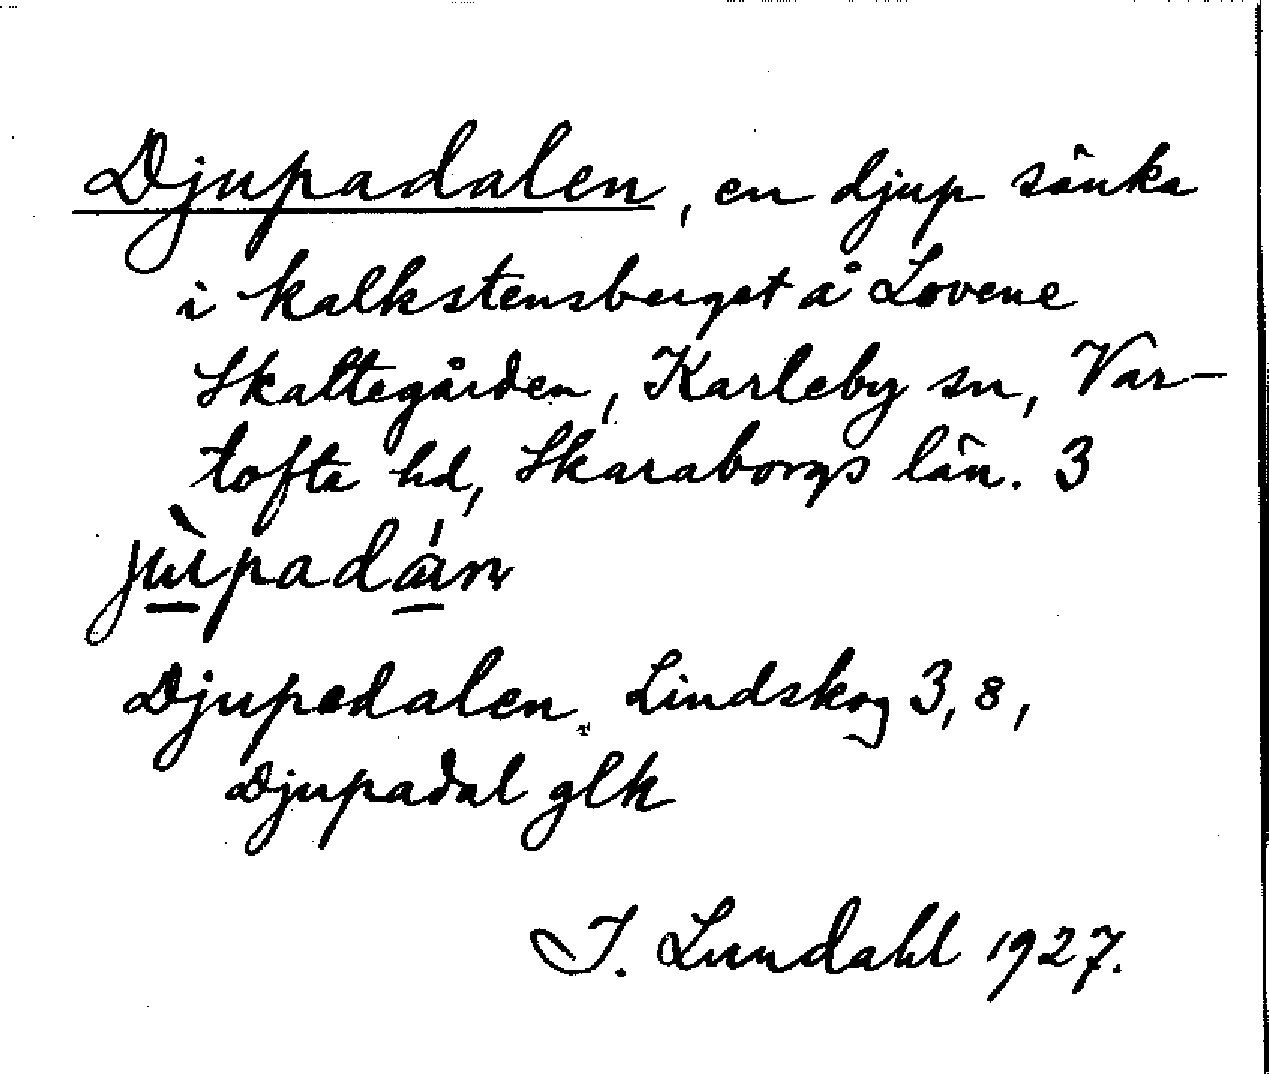 Djupadalen, en djup sänka
i kalkstensberget å Lovene
Skattegården, Karleby sn, Var-
tofta hd, Skaraborgs län. 3
jùpadán
Djupedalen Lindskog 3, 8,
Djupadal glk
I. Lundahl 1927.